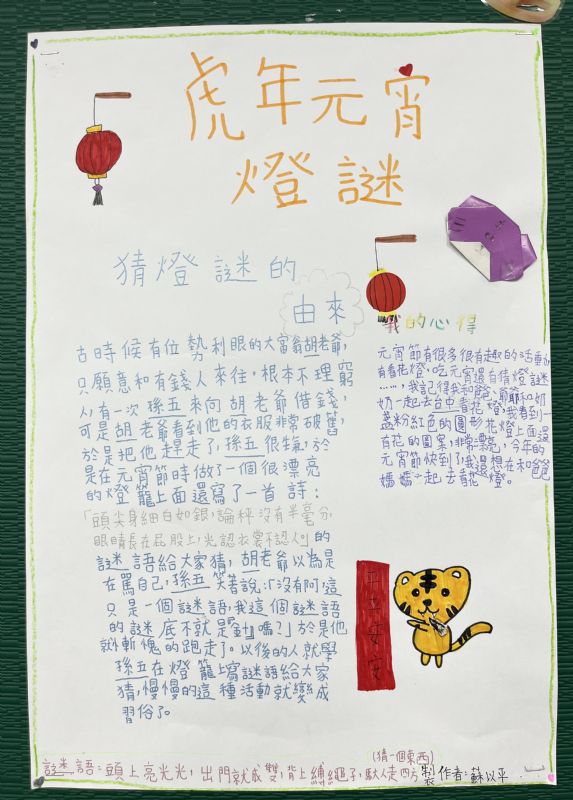 虎年元宵
燈謎
猜燈謎的
由來
古時候有位勢利眼的大富翁胡老爺,
只願意和有錢人來往,根本不理窮
人,有一次孫五來向胡老爺借錢,
可是胡老爺看到他的衣服非常破舊,
於是把他趕走了,孫五很生氣,於
是在元宵節時做了一個很漂亮
的燈籠上面還寫了一首詩:
「頭尖身細白如銀,論秤沒有半毫分,
眼睛長在屁股上,光認衣裳不認人。」的
謎語給大家猜,胡老爺以為是
在罵自己,孫五笑著說:「沒有阿,這
只是一個謎語,我這個謎語
的謎底不就是『針』嗎?」於是他
就慚愧的跑走了。以後的人就學
孫五在燈籠上寫謎語給大家
猜,慢慢的這種活動就變成
習俗了。
我的心得
元宵節有很多很有趣的活動,
有看花燈、吃元宵還有猜燈謎
……,我記得我和爸爸、爺爺和奶
奶一起去台中看花燈,我看到一
盞粉紅色的圓形花燈上面還
有花的圖案,非常漂亮,今年的
元宵節快到了,我還想在和爸爸
媽媽一起去看花燈。
平立安安
(猜一個東西)
謎語:頭上亮光光,出門就成雙,背上縛繩子,馱人走四方 製作者:蘇以平